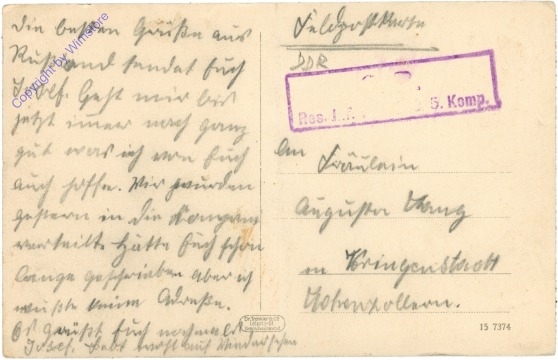 Die besten Grüße aus
Rußland sendet Euch
Josef. Geht mir bis
jetzt immer noch ganz
gut was ich von Euch
auch hoffe. Wir wurden
gestern in die
verteilt. Hätte Euch schon
lange geschrieben aber ich
wußte keine Adresse.
Es grüßt Euch nochmals
Josef. auf Wiedersehen
Feldpostkarte
Res. 5. Komp.
An
Fräulein
Augusta
in
Hohenzollern.
15 7374
Copyright by Winstore